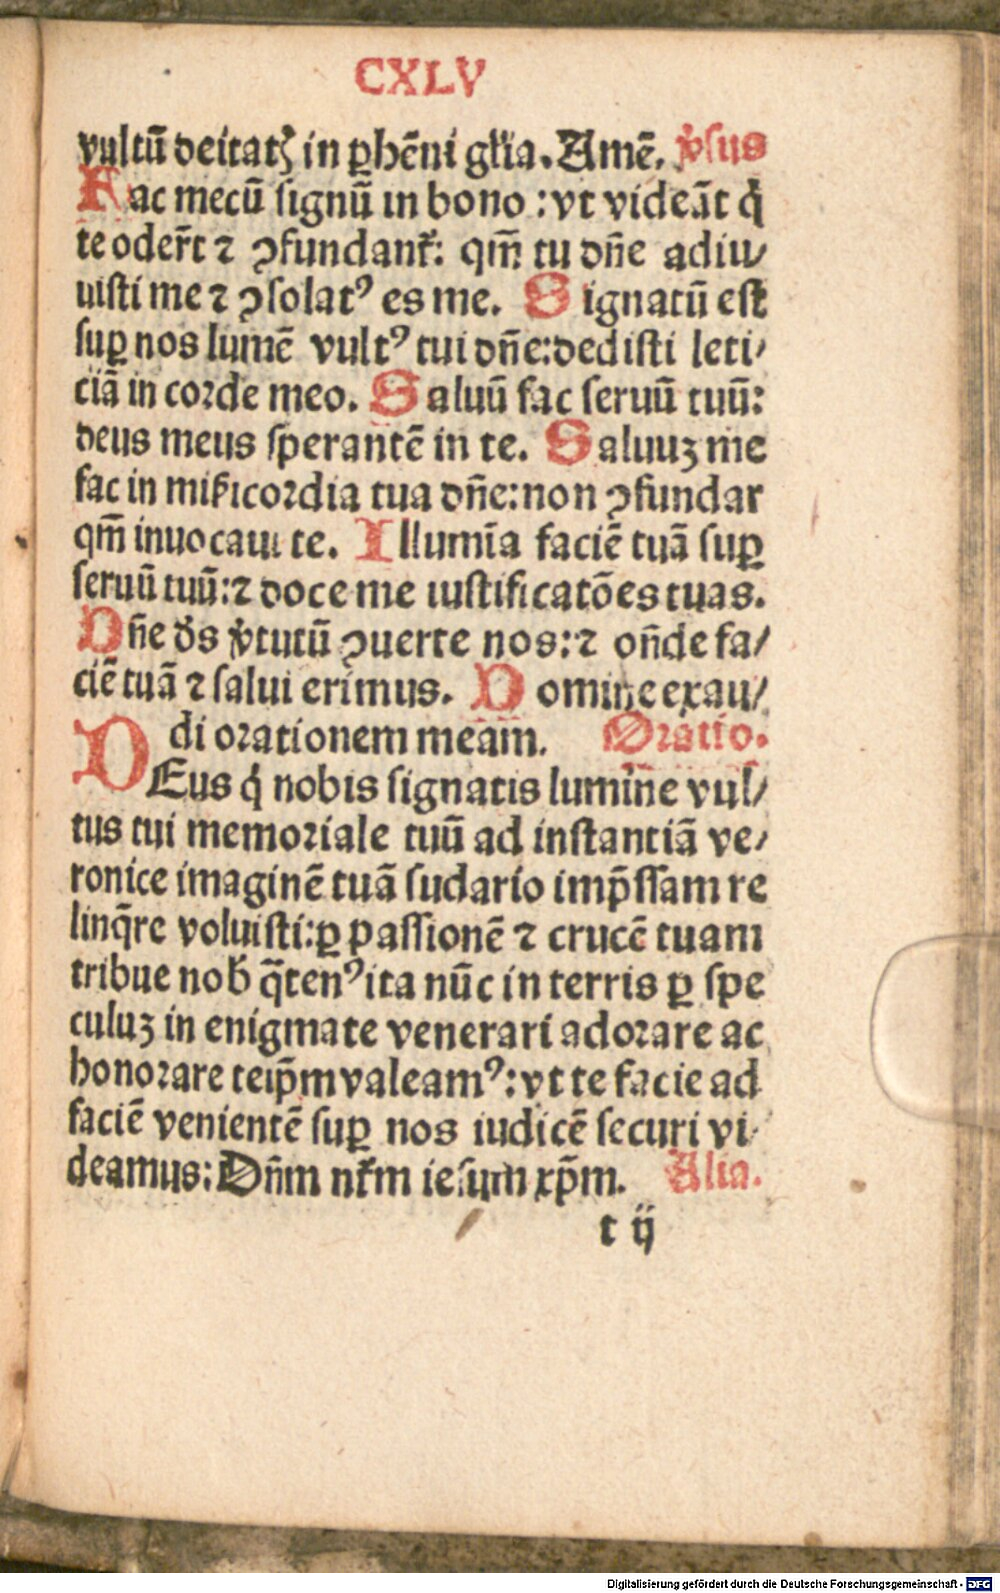 CXLV
vultū deitatꝭ in ꝑhēni gĺia. Amē. v̓sus
Fac mecū signū in bono : vt videāt q̇
te oder̄t ⁊ ꝯfundant᷑: qm̄ tu dn̄e adiu/
uisti me ⁊ ꝯsolatꝰ es me. Signatū est
suꝑ nos lumē vultꝰ tui dn̄e: dedisti leti/
ciā in corde meo. Saluū fac seruū tuū:
deus meus sperantē in te. Saluuꝫ me
fac in mißicordia tua dn̄e: non ꝯfundar
qm̄ inuocaui te. Illumīa faciē tuā suꝑ
seruū tuū: ⁊ doce me iustificatōes tuas.
Dn̄e de̓s v̓tutū ꝯuerte nos: ⁊ on̄de fa/
ciē tuā ⁊ salui erimus. Domine exau/
di orationem meam. Oratio.
DEus q̇ nobis signatis lumine vul/
tus tui memoriale tuū ad instantiā ve/
ronice imaginē tuā sudario imp̄ssam re
linq̄re voluisti: ꝑ passionē ⁊ crucē tuam
tribue nob̓ q̄tenꝰ ita nūc in terris ꝑ spe
culuꝫ in enigmate venerari adorare ac
honorare teip̄m valeamꝰ: vt te facie ad
faciē venientē suꝑ nos iudicē securi vi/
deamus: Dn̄m nr̄m iesum xp̄m. Alia.
t ij
Digitalisierung gefördert durch die Deutsche Forschungsgemeinschaft - DFG